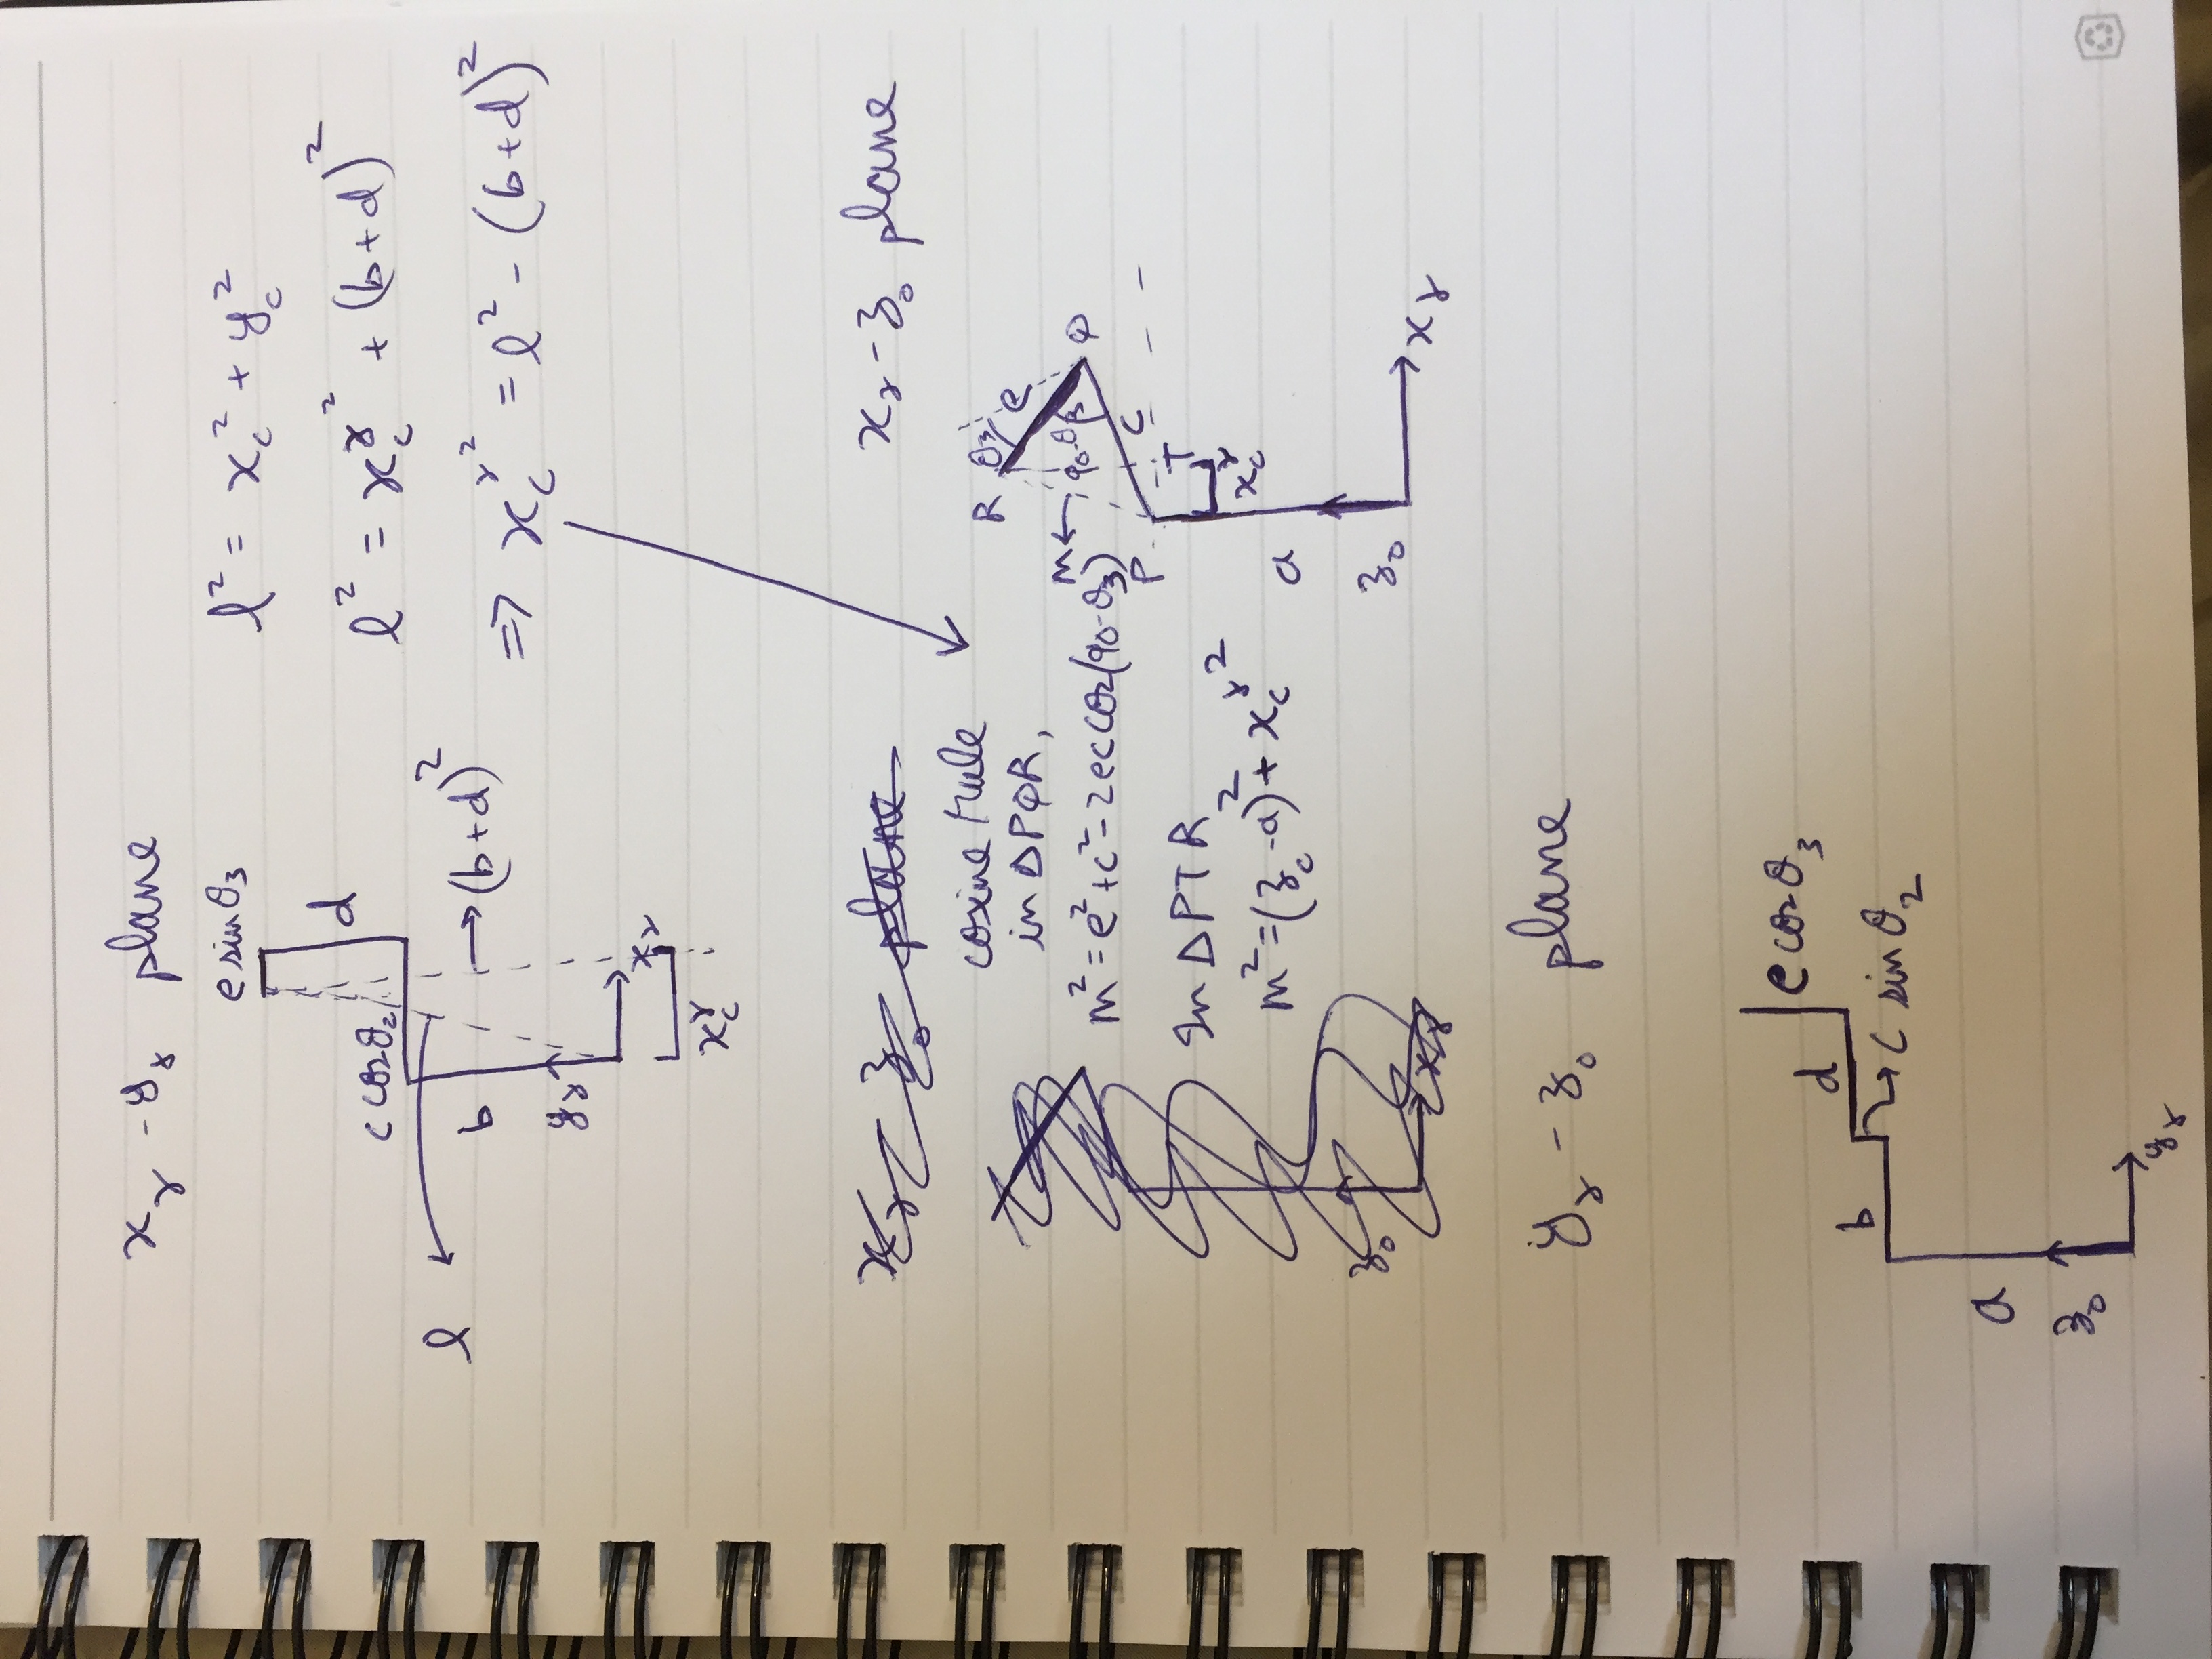 x_γ - y_γ plane
e sin θ_3
l² = x_c² + y_c²
d
c cos θ_2
l² = x_c^γ² + (b+d)²
l
b
→ (b+d)²
⇒ x_c^γ² = l² - (b+d)²
y_γ
x_γ
x_c^γ
x_γ - z_0 plane
x_γ - z_0 plane
cosine rule
in ΔPQR,
m² = e² + c² - 2ec cos(90-θ_3)
In ΔPTR
m² = (z_c - a)² + x_c^γ²
z_0
x_γ
R
θ_3
e
m
90-θ_3
Q
P
c
T
x_c^γ
a
z_0
x_γ
y_γ - z_0 plane
e cos θ_3
d
b
c sin θ_2
a
z_0
y_γ